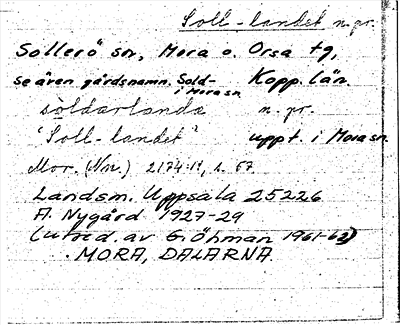 Soll-landet n.pr.
Sollerö sn, Mora o. Orsa tg,
se även gårdsnamn. Sold- Kopp. län.
i Mora sn
söldarlanda n. pr.
"Soll-landet" uppt. i Mora sn.
Mor. (Nn.) 2174:19, s. 67
Landsm. Uppsala 25226
A. Nygård 1927-29
(utred. av G. Öhman 1961-62)
MORA, DALARNA.